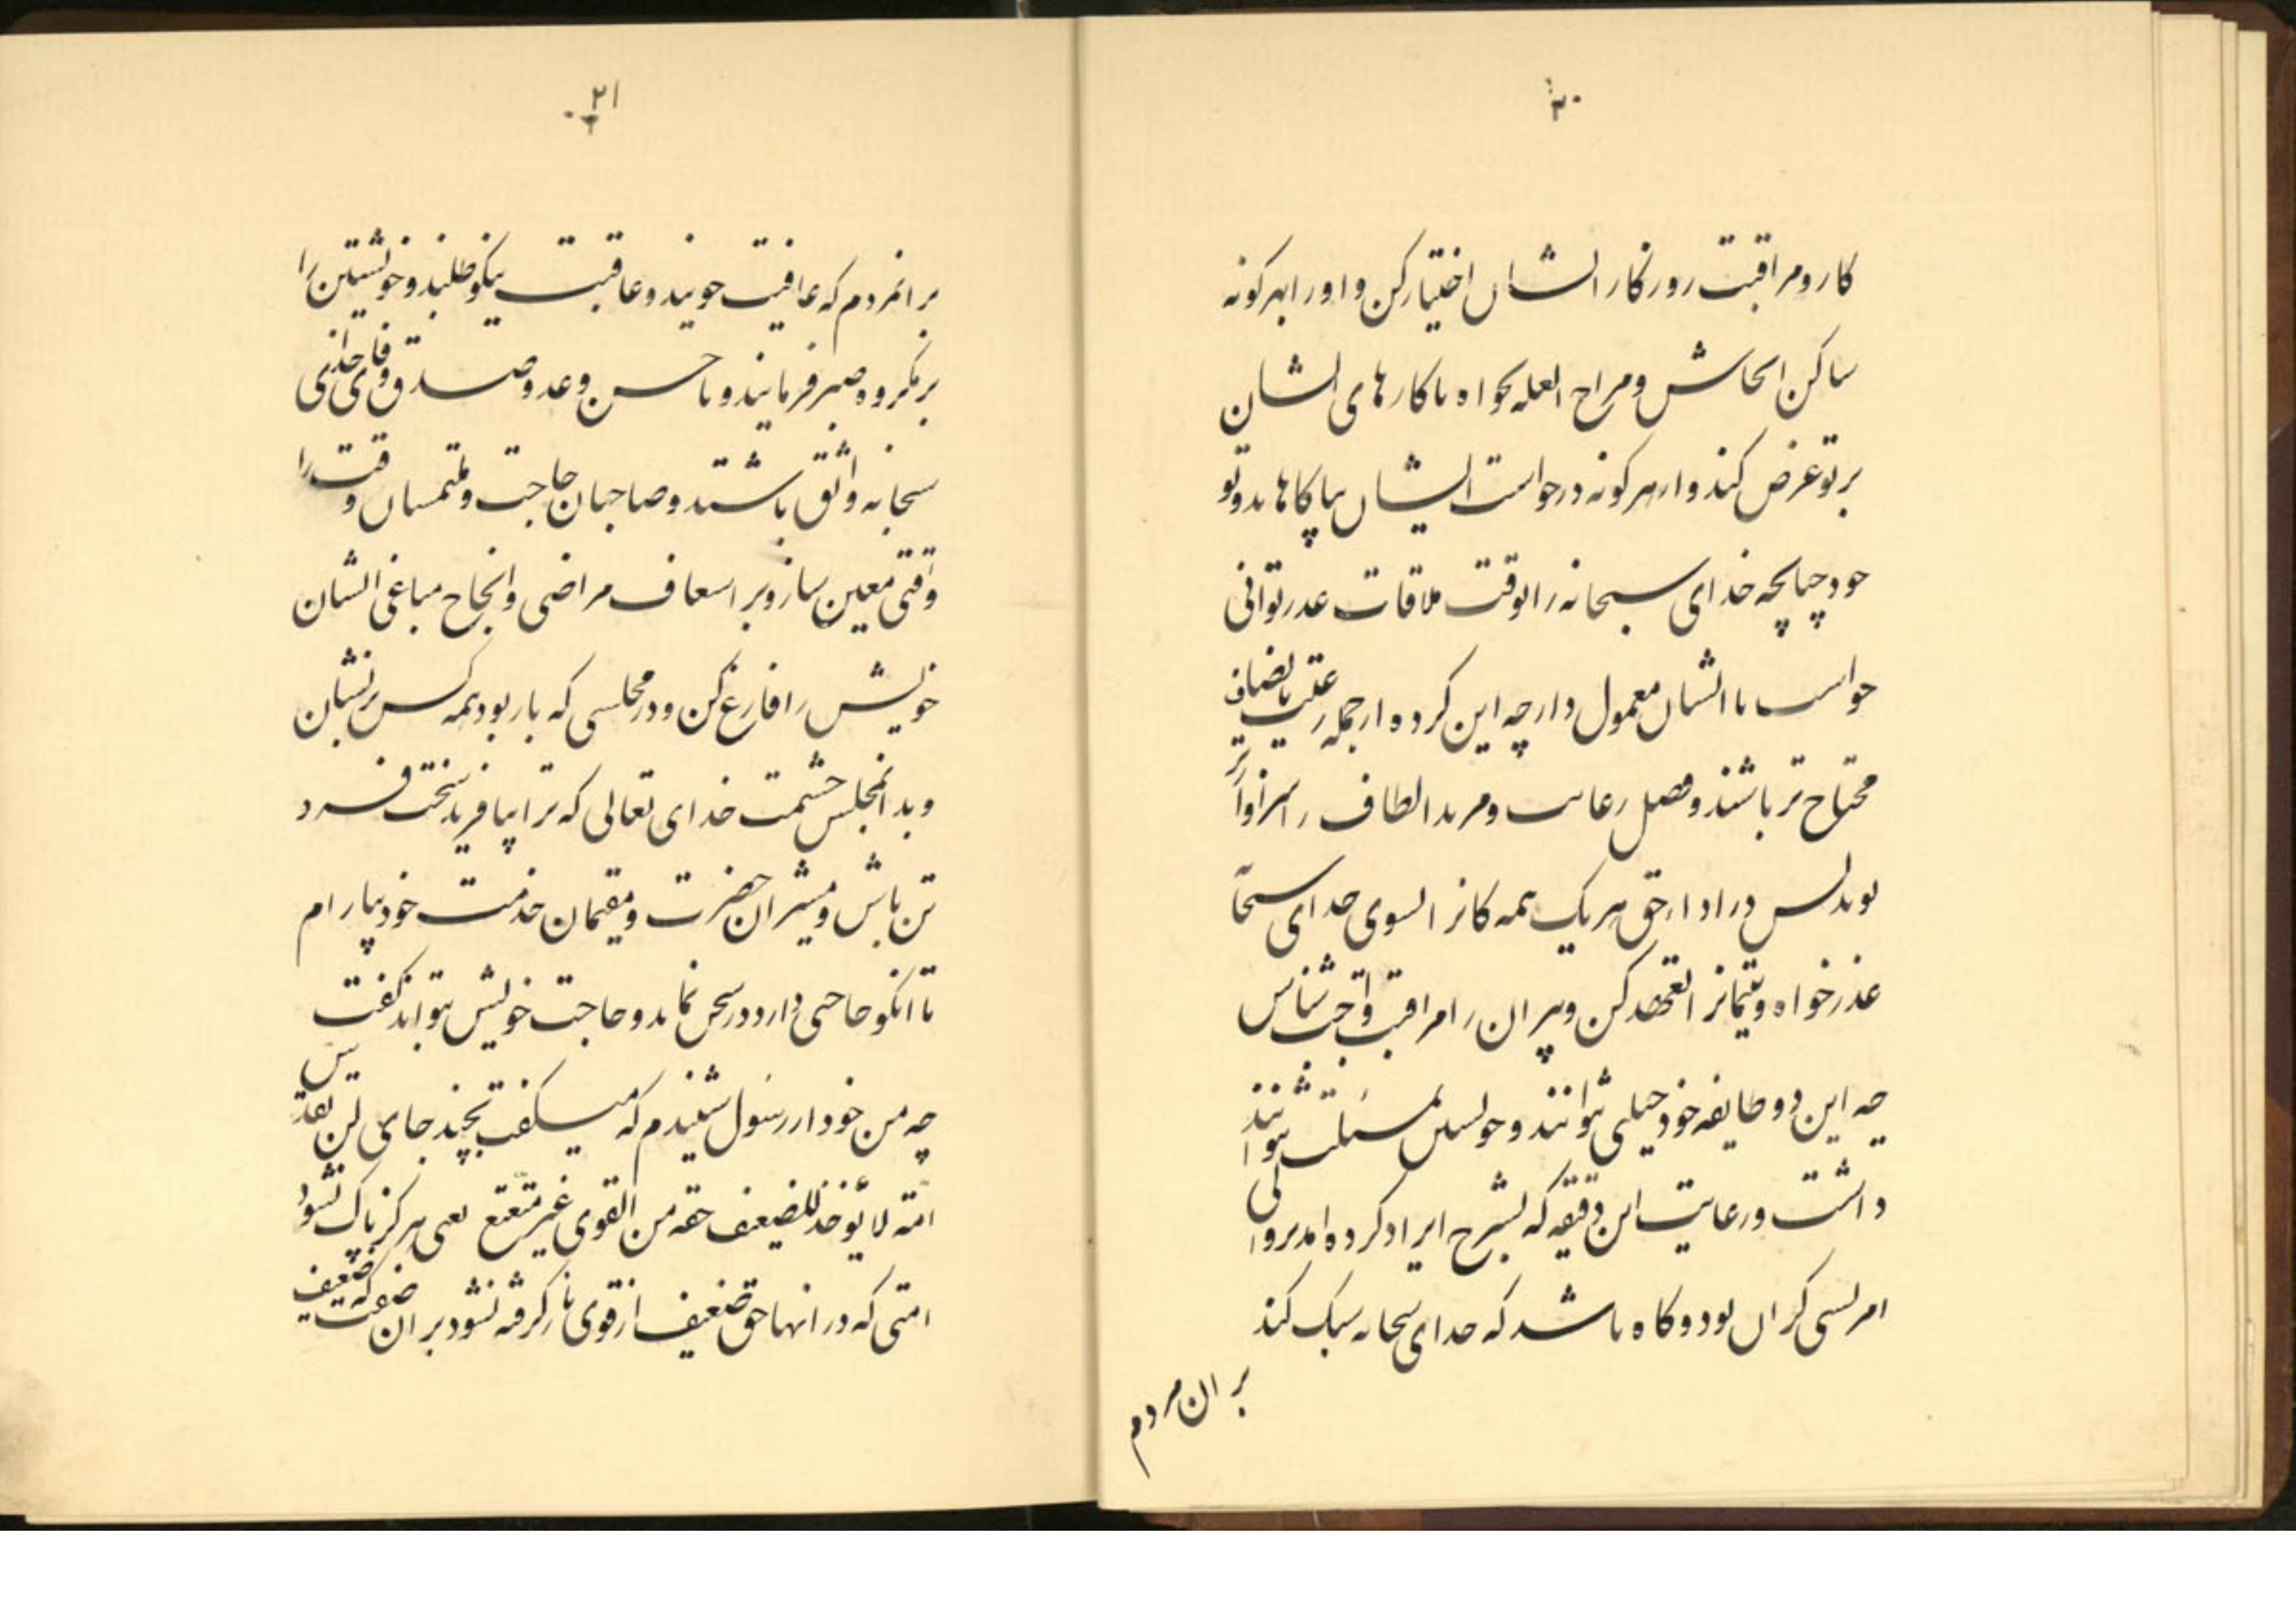 ۲۰
کار و مراقبت روزکار ایشان اختیار کن و او را بهر کونه
ساکن الحاش و مزاح العله بخواه تا کارهای ایشان
بر تو عرض کند و از هر کونه درخواست ایشان بیاکاهاند و تو
خود چنانچه خدای سبحانه را بوقت ملاقات عذر توانی
خواست با ایشان معمول دار چه این کرده از جمله رعیت بانصاف
محتاج تر باشند و فضل رعایت و مزید الطاف را سزاوارتر
بوند پس در ادا حق هر یک همه کانرا بسوی خدای سبحا
عذر خواه و یتیمانرا تعهد کن و پیران را مراقبت واجب شناس
چه این دو طایفه خود حیلتی نتوانند و خویشتن بمسئلت نتوانند
داشت و رعایت این دقیقه که بشرح ایراد کرده امد بر والی
امر بسی کران بود و کاه باشد که خدای سبحانه سبک کند
بر ان مردم
۲۱
بر انمردم که عافیت جویند و عاقبت نیکو طلبند و خویشتن را
بر مکروه صبر فرمایند و با حسن وعد و صدق وفای خدای
سبحانه واثق باشند و صاحبان حاجت و ملتمسان وقت را
وقتی معین ساز و بر اسعاف مراضی و انجاح مباغی ایشان
خویش را فارغ کن و در مجلسی که بار بود همه کس بنشان
و بدانمجلس حشمت خدای تعالی که ترا بیافرید سخت فرد
تن باش و مشیران حضرت و مقیمان خدمت خود بیارام
تا انکو حاجتی دارد در سخن نماند و حاجت خویش تواند کفت
چه من خود از رسول شنیدم که میکفت بچند جای لن تقدس
امته لا یؤخذ للضعیف حقه من القوی غیر متعتع یعنی هرکز پاک نشود
امتی که در انها حق ضعیف از قوی باز کرفته نشود بر ان صفت که ضعیف